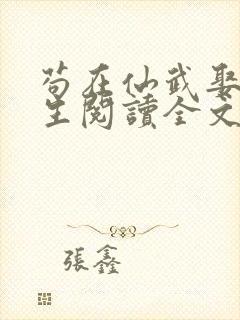 苟在仙武娶
生閱讀全文
張鑫